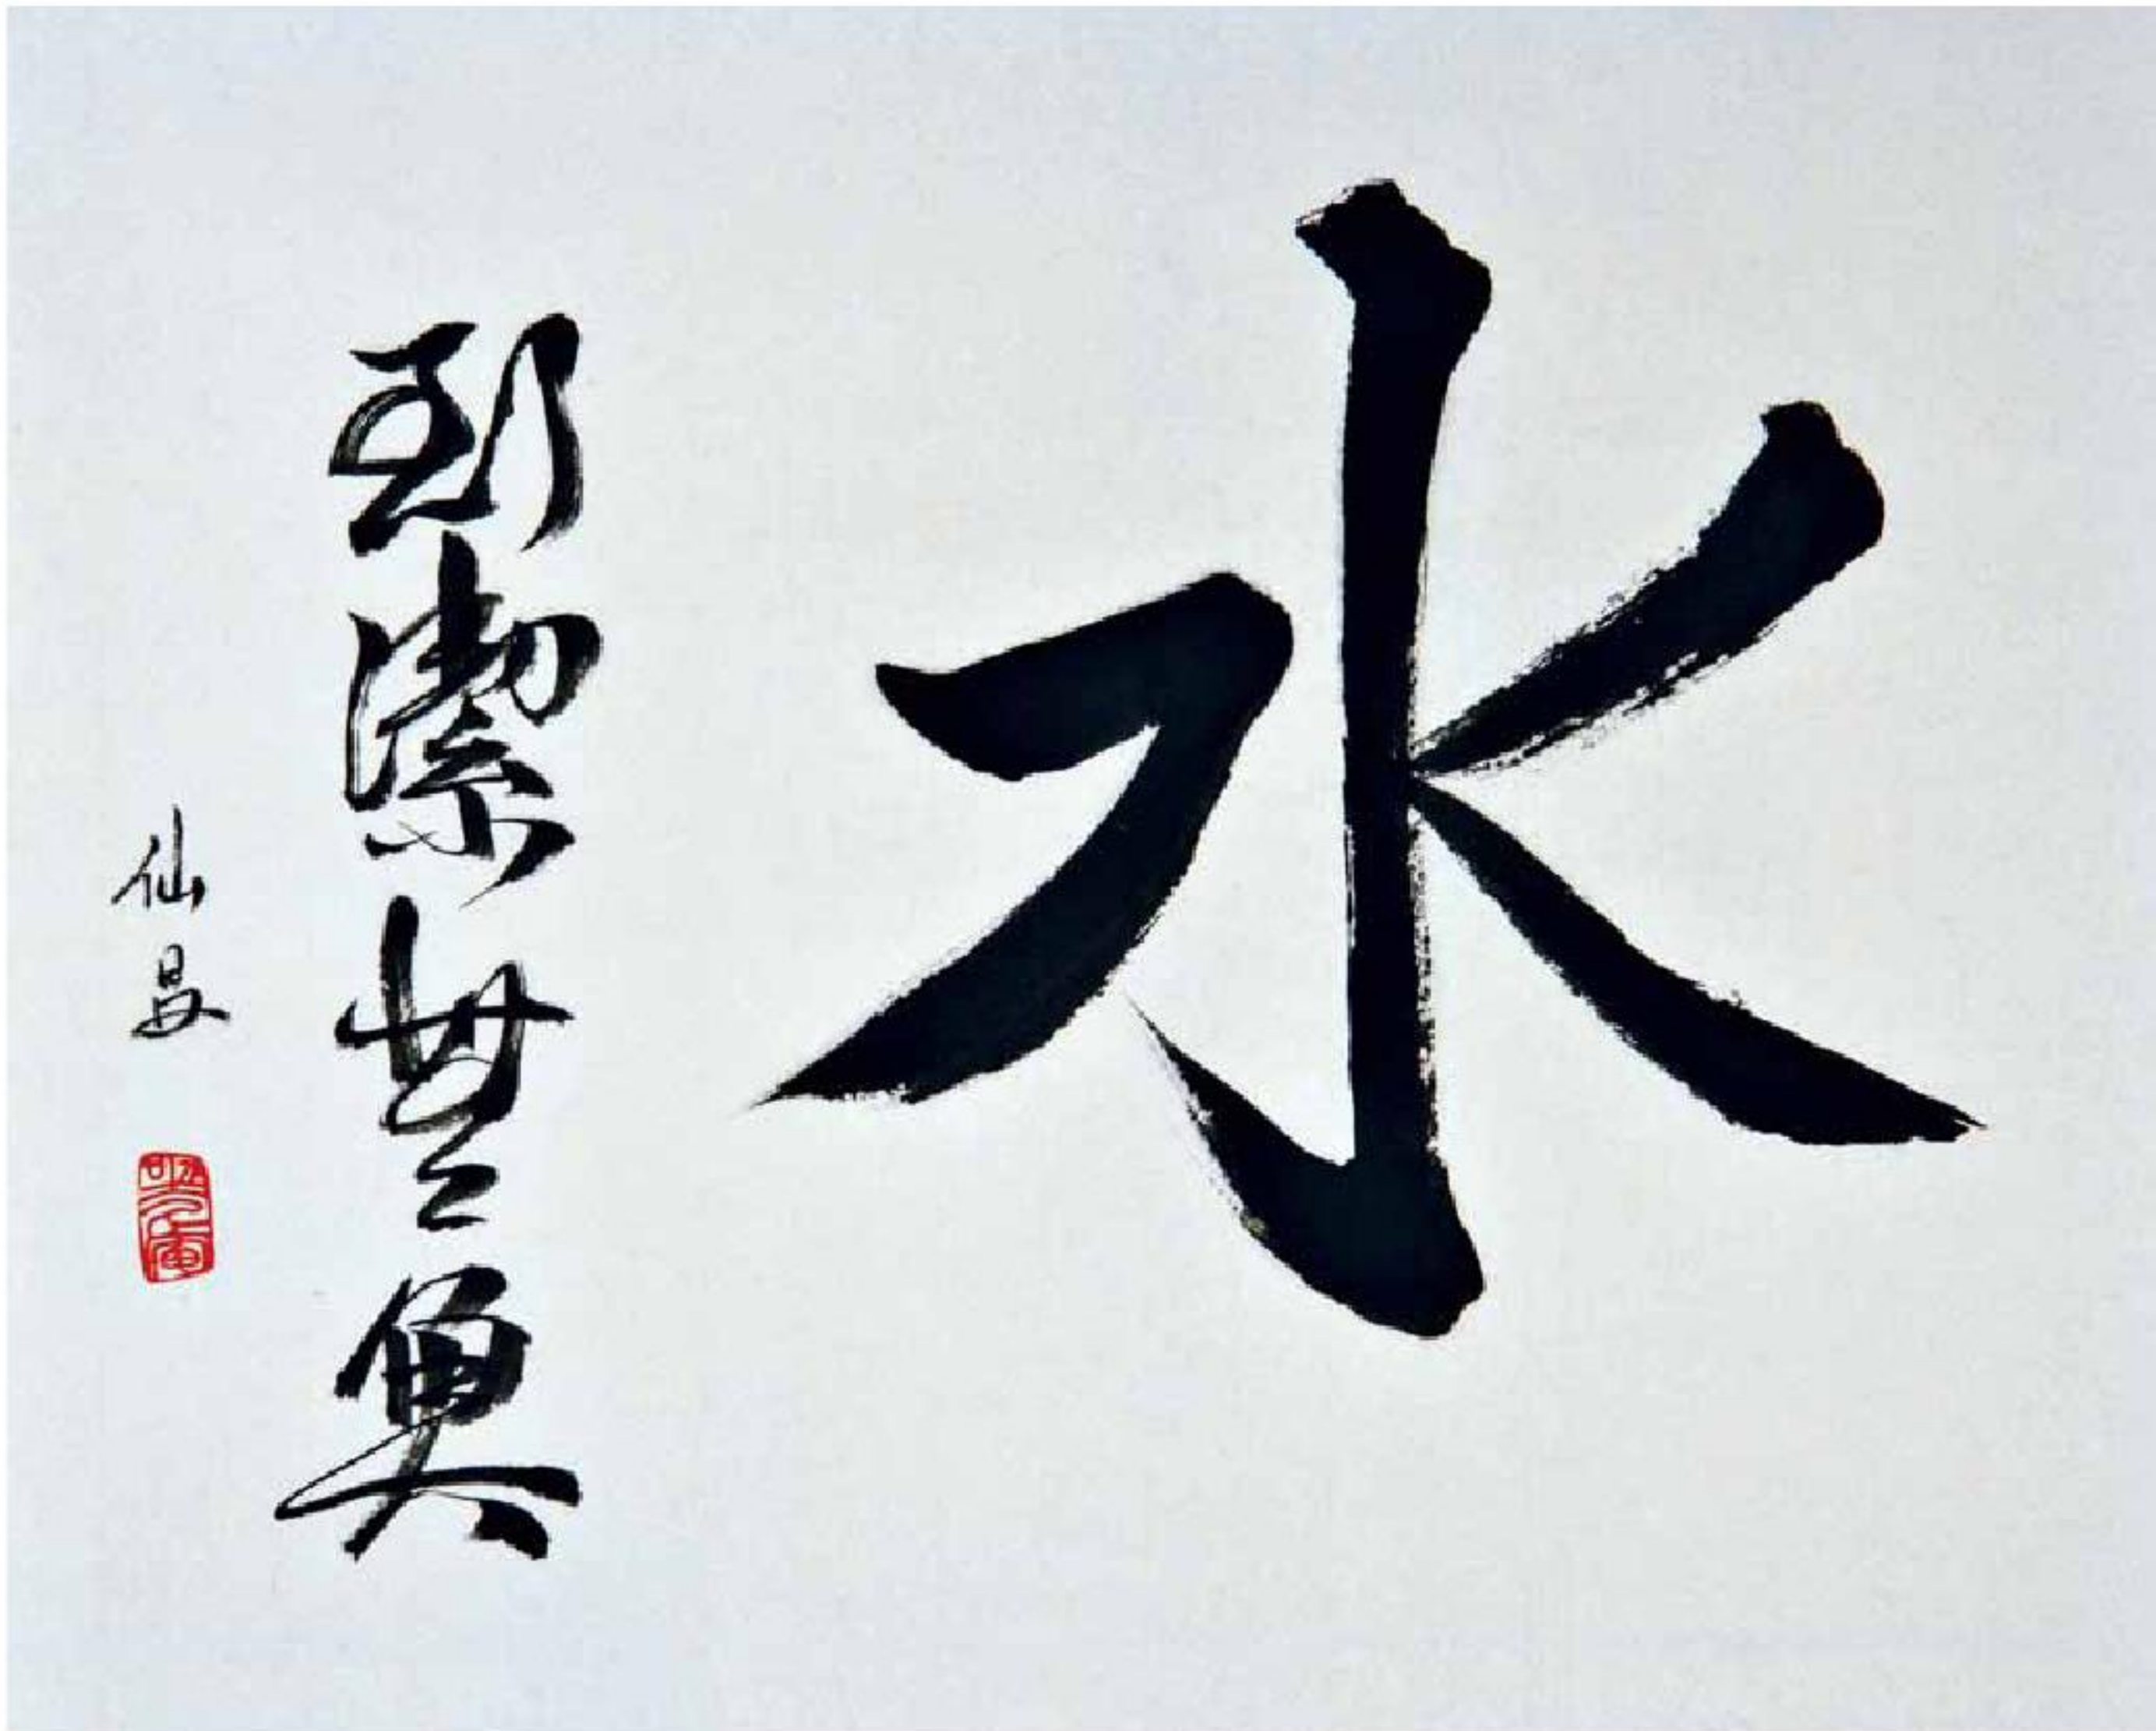 水
到潔無魚
仙晏